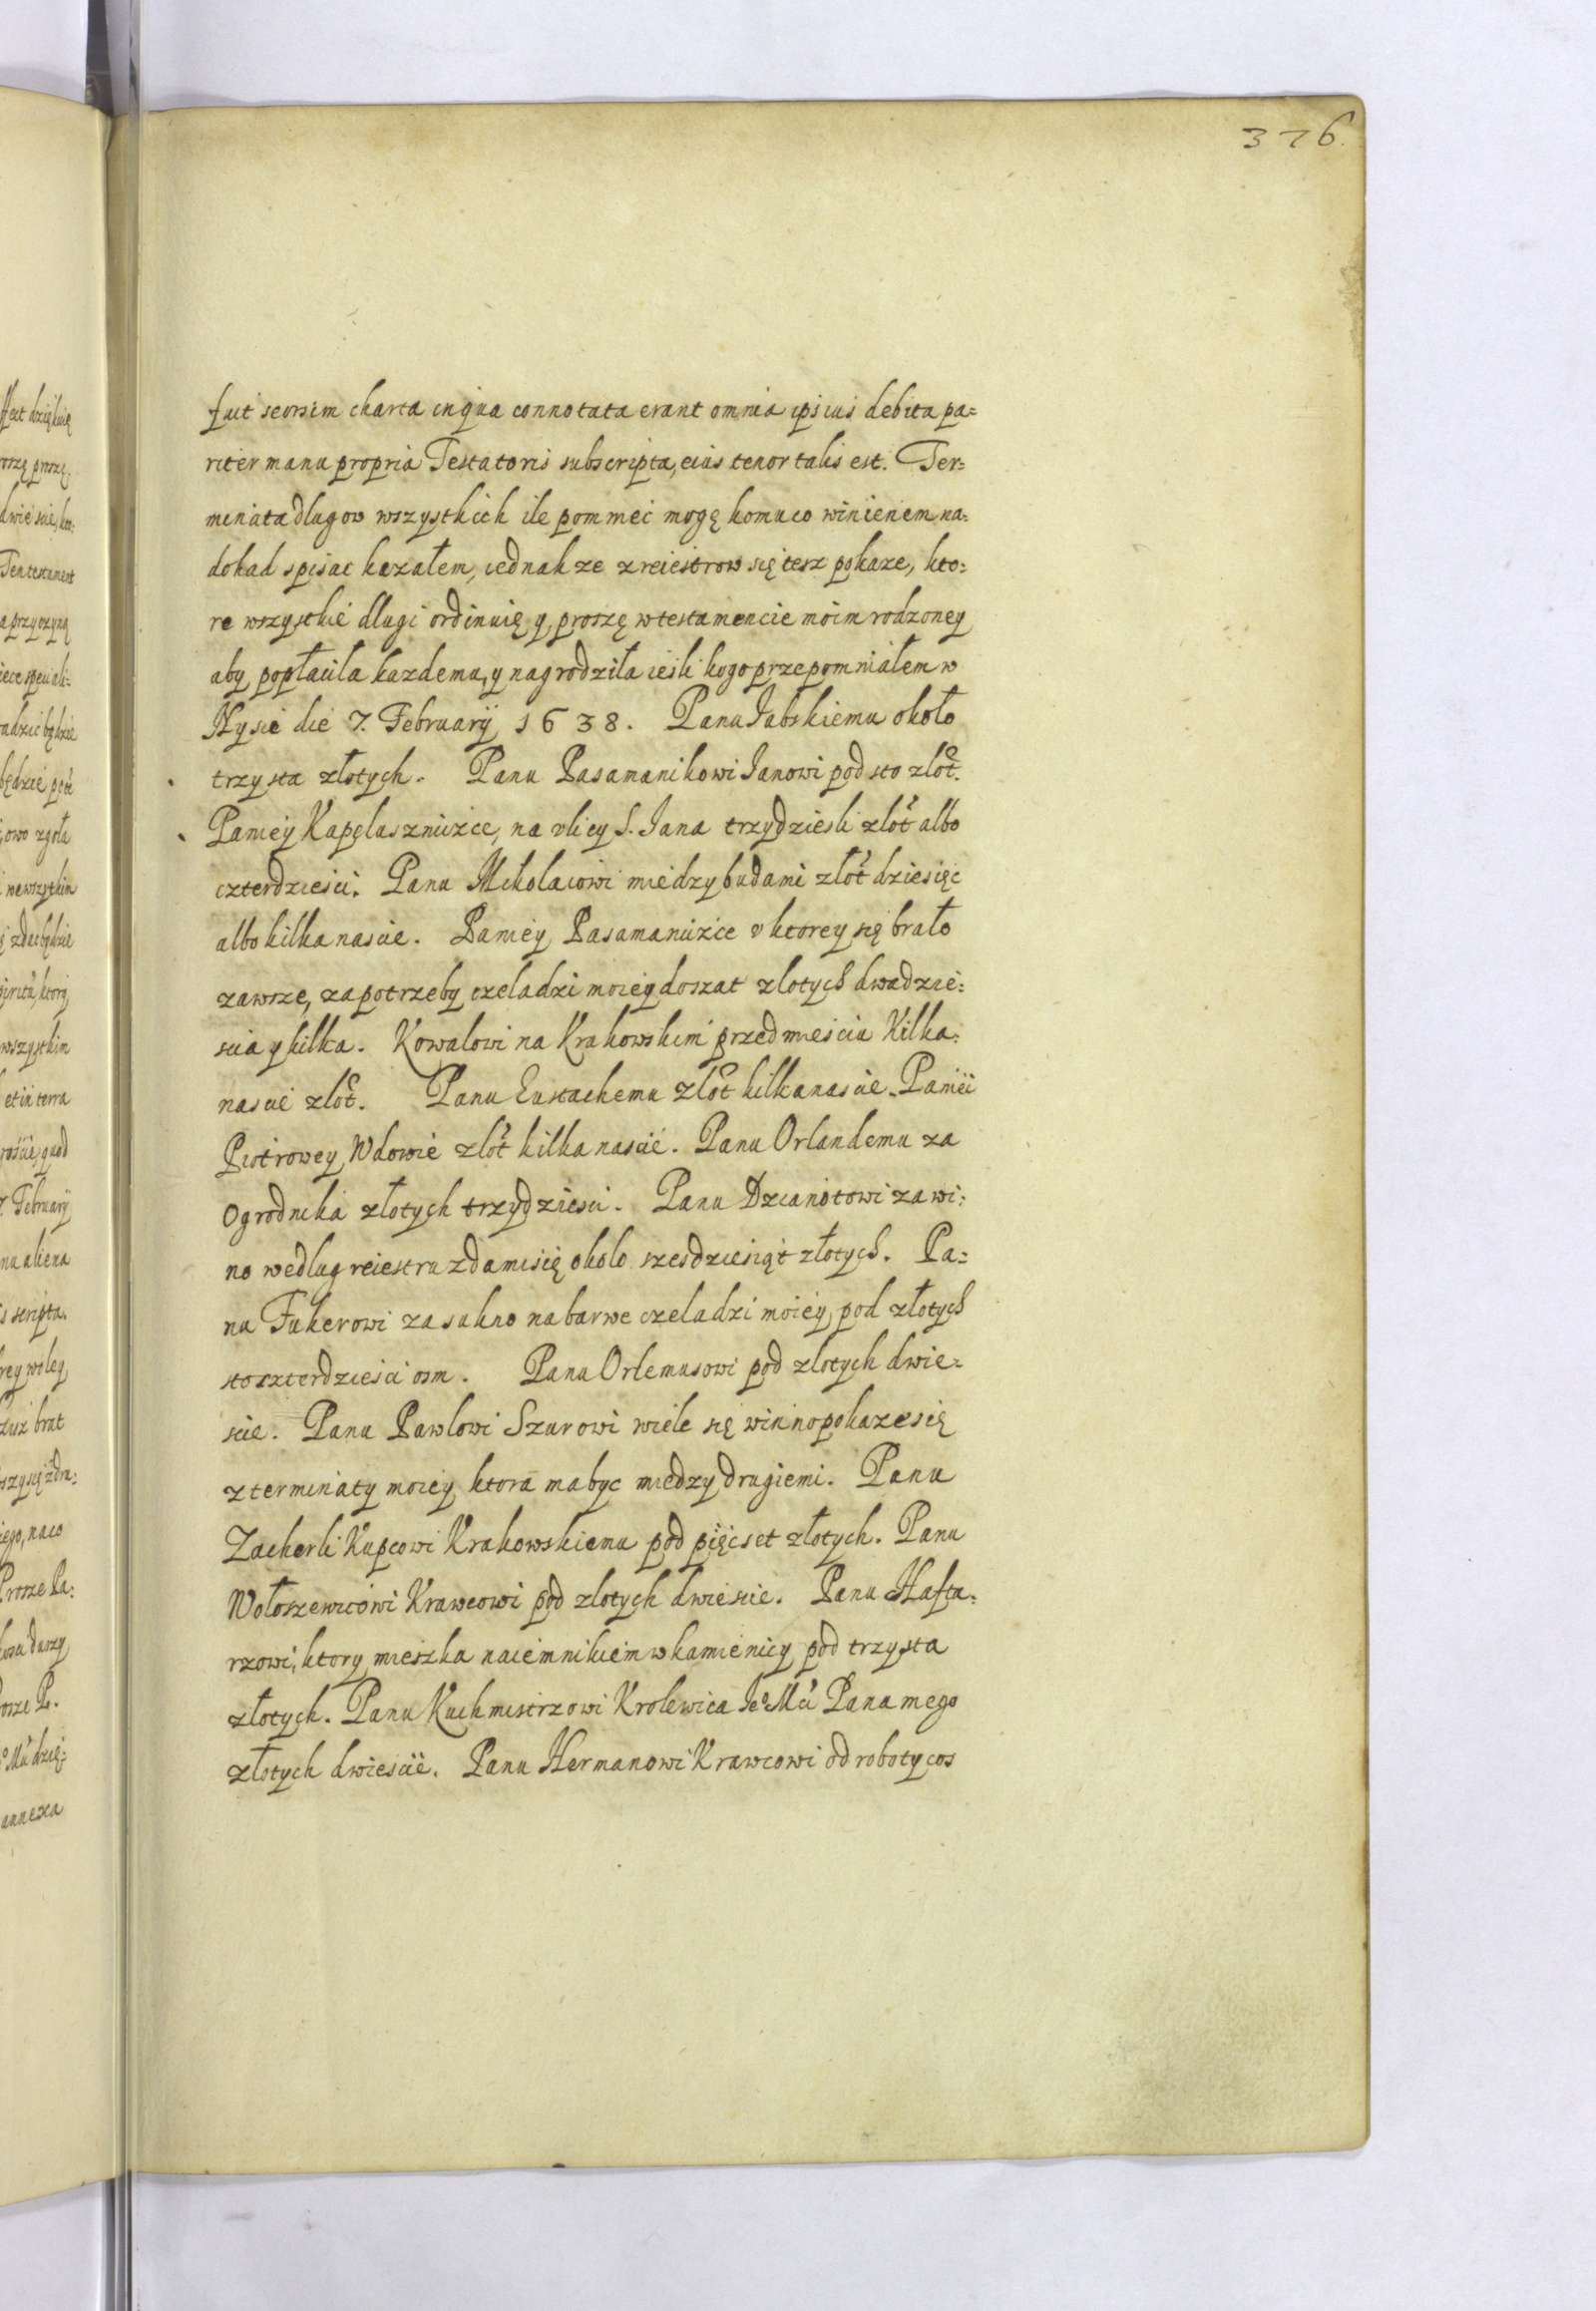 376.
fuit seorsim charta in qua connotata erant omnia ipsius debita pa=
riter manu propria Testatoris subscripta, eius tenor talis est. Ter=
minata dlugow wszystkich ile pomniec mogę komu co winienem, na=
dokad spisac kazałem, iednakze z reiestrow się tesz pokaze, kto=
re wszystkie dlugi ordinuię y proszę w testamencie moim rodzoney
aby popłaciła kazdemu, y nagrodziła iesli kogo przepomniałem w
Nysie die 7. February 1638. Panu Iabskiemu około
trzysta złotych. Panu Pasamanikowi Ianowi pod sto zlot.
Paniey Kapeluszniczce, na vlicy S. Iana trzydziesli zlot albo
czterdziesci. Panu Mikolaiowi miedzy budami złot dziesięc
albo kilkanascie. Paniey Pasamanicce v ktorey się brało
zawsze, za potrzeby czeladzi moiey do szat zlotych dwadzie=
scia y kilka. Kowalowi na Krakowskim przedmiesciu Kilka=
nascie zlot. Panu Eustachemu zlot kilkanascie. Paniei
Piotrowey Wdowie zlot kilkanascie. Panu Orlandemu za
Ogrodnika złotych trzydziesci. Panu Dzianotowi za wi=
no wedlug reiestru zda mi się okolo szesdziesiąt złotych. Pa=
nu Fukerowi za sukno na barwe czeladzi moiey pod złotych
sto czterdziesci osm. Panu Orlemusowi pod zlotych dwie=
scie. Panu Pawlowi Szurowi wiele się winno pokaze się
z terminaty moiey ktora ma byc miedzy drugiemi. Panu
Zacherli Kupcowi Krakowskiemu pod pięcset złotych. Panu
Wołoszewicowi Krawcowi pod zlotych dwiescie. Panu Hafta=
rzowi, ktory mieszka naiemnikiem w kamienicy pod trzysta
złotych. Panu Kuchmistrzowi Krolewica Ie° Mci Pana mego
złotych dwiescie. Panu Hermanowi Krawcowi od roboty cos